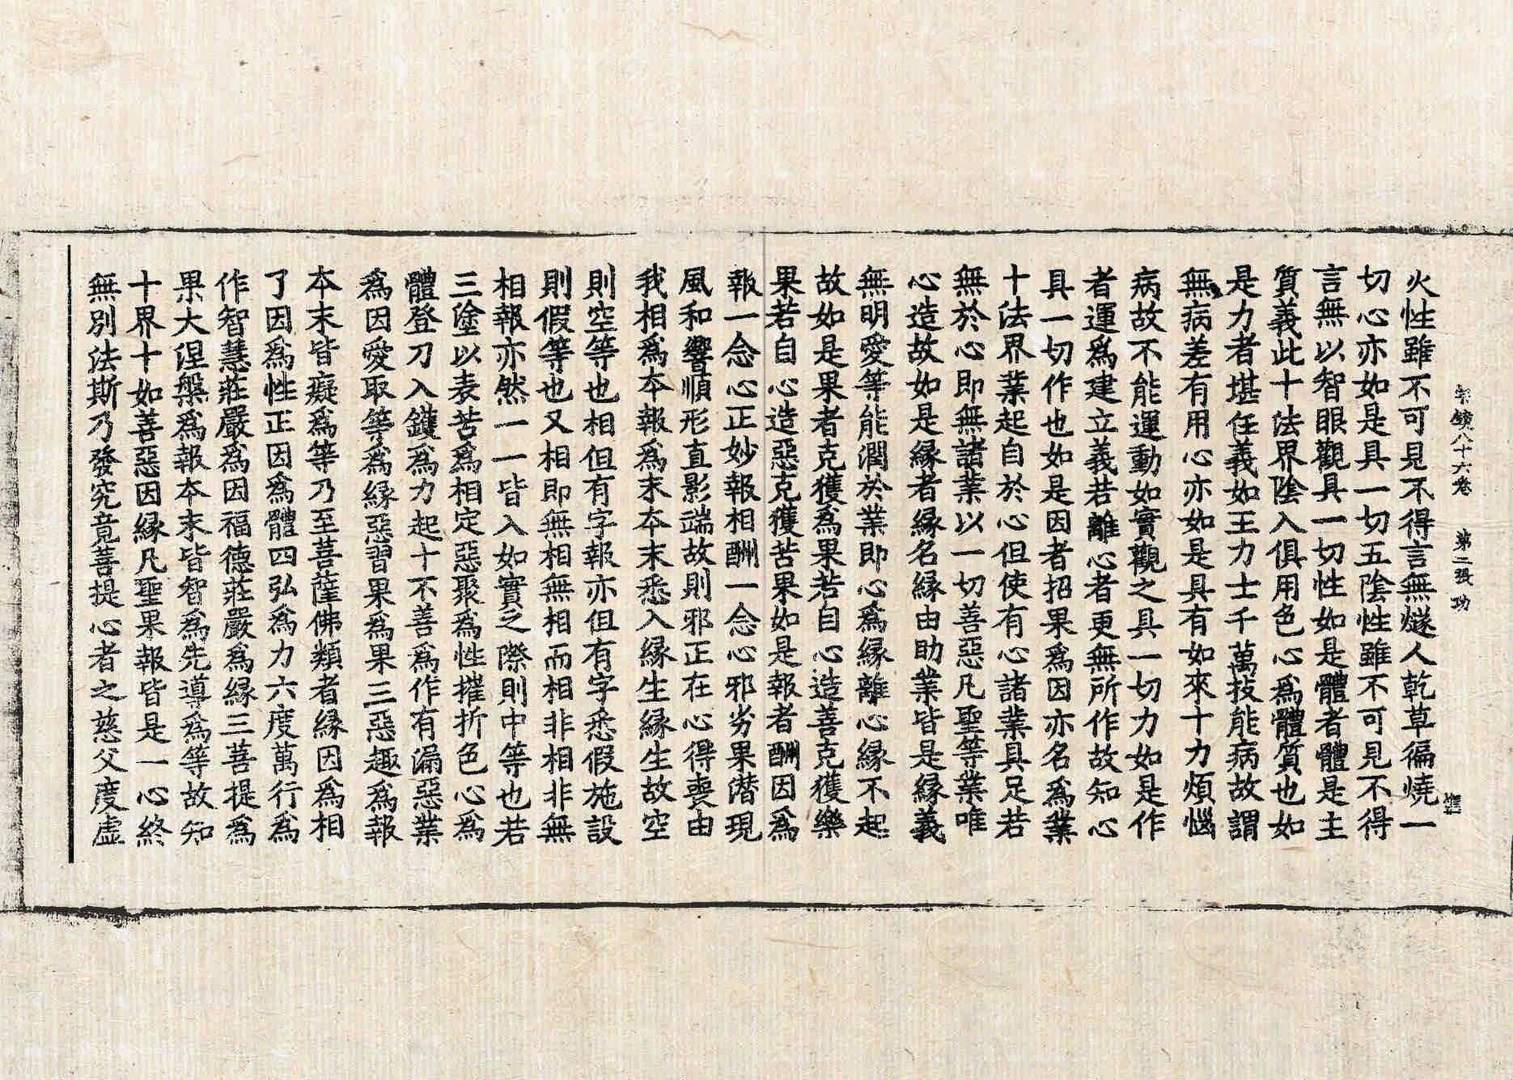 宗鏡八十六卷　第二張　功
火性雖不可見不得言無燧人乾草徧燒一
切心亦如是具一切五陰性雖不可見不得
言無以智眼觀具一切性如是體者體是主
質義此十法界陰入俱用色心爲體質也如
是力者堪任義如王力士千萬技能病故謂
無病差有用心亦如是具有如來十力煩惱
病故不能運動如實觀之具一切力如是作
者運爲建立義若離心者更無所作故知心
具一切作也如是因者招果爲因亦名爲業
十法界業起自於心但使有心諸業具足若
無於心即無諸業以一切善惡凡聖等業唯
心造故如是緣者緣名緣由助業皆是緣義
無明愛等能潤於業即心爲緣離心緣不起
故如是果者克獲爲果若自心造善克獲樂
果若自心造惡克獲苦果如是報者酬因爲
報一念心正妙報相酬一念心邪劣果潛現
風和響順形直影端故則邪正在心得喪由
我相爲夲報爲末夲末悉入緣生緣生故空
則空等也相但有字報亦但有字悉假施設
則假等也又相即無相無相而相非相非無
相報亦然一一皆入如實之際則中等也若
三塗以表苦爲相定惡聚爲性摧折色心爲
體登刀入鑊爲力起十不善爲作有漏惡業
爲因愛取等爲緣惡習果爲果三惡趣爲報
夲末皆癡爲等乃至菩薩佛類者緣因爲相
了因爲性正因爲體四弘爲力六度萬行爲
作智慧莊嚴爲因福德莊嚴爲緣三菩提爲
果大涅槃爲報夲末皆智爲先導爲等故知
十界十如善惡因緣凡聖果報皆是一心終
無別法斯乃發究竟菩提心者之慈父度虛